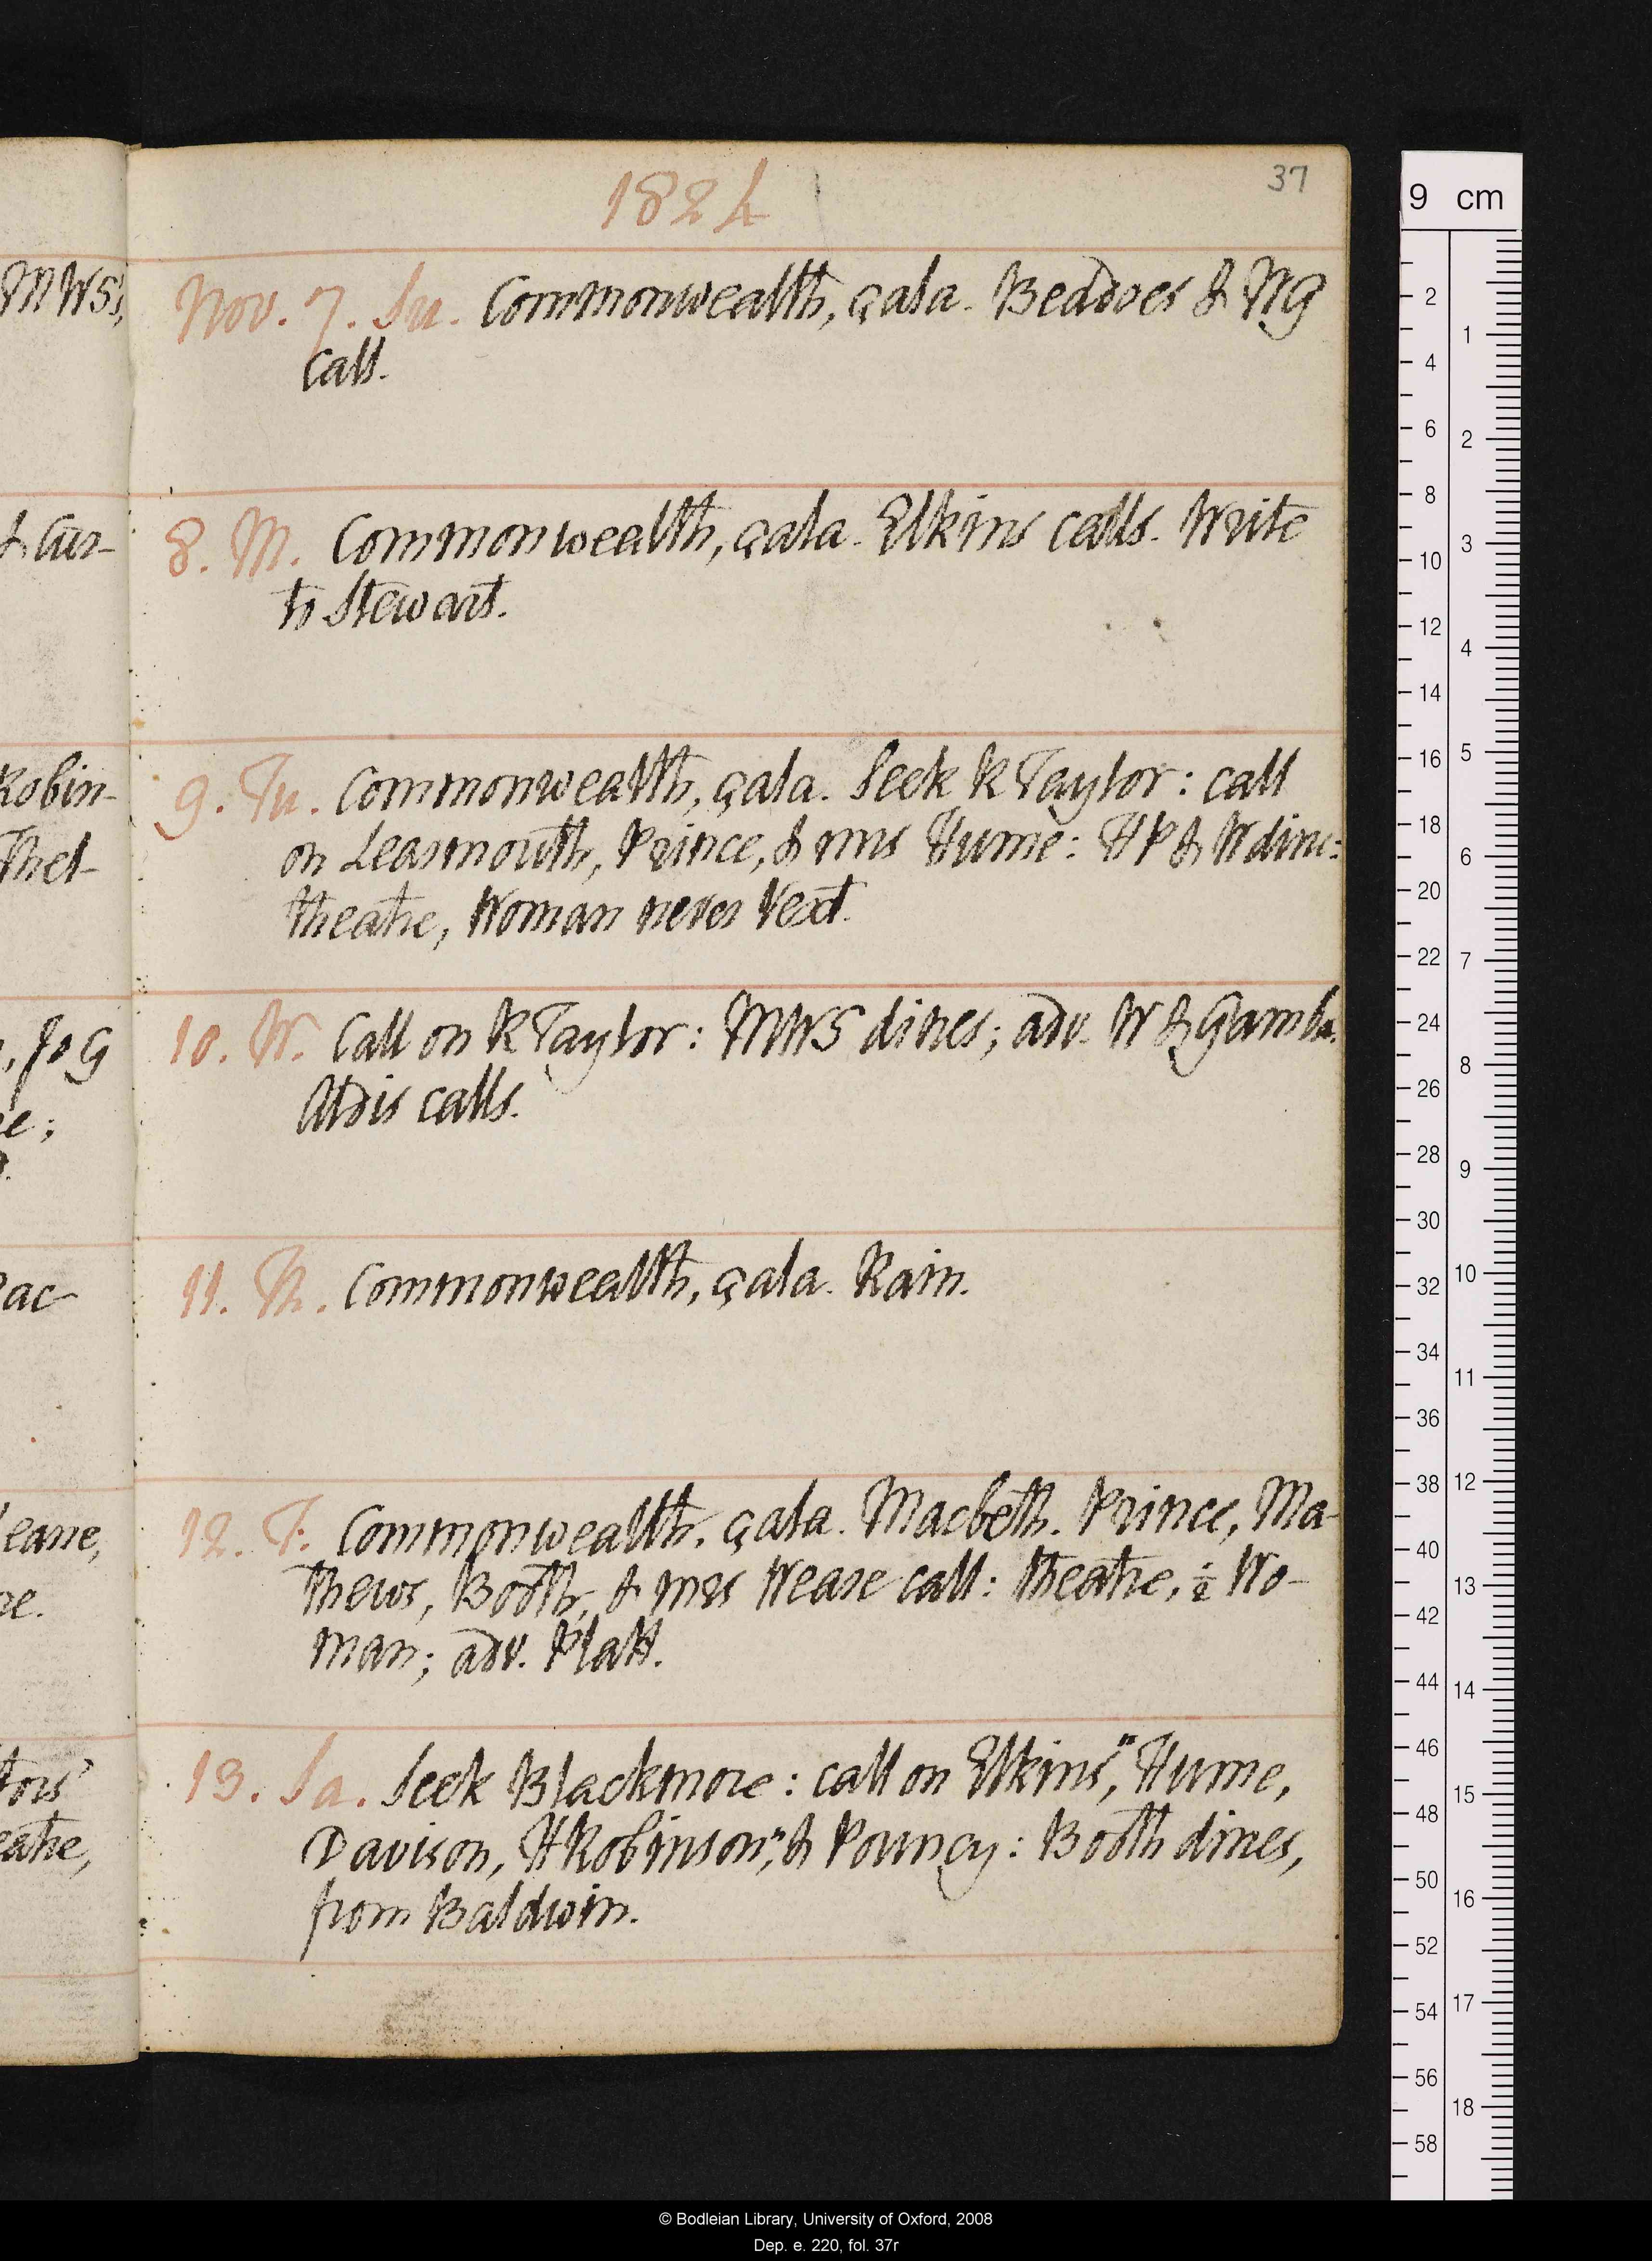 1824
37
Nov. 7. Su. Commonwealth, çala. Beddoes & WG
call.
8. M. Commonwealth, çala. Elkins calls. Write
to Stewart.
9. Tu. Commonwealth, çala. Seek R Taylor: call
on Learmouth, Prince, & mrs Hume: HP & W dine:
theatre, Woman never Vext.
10. W. Call on R Taylor: MWS dines; adv. W & Gamba.
Aldis calls.
11. Th. Commonwealth, çala. Rain.
12. F. Commonwealth, çala. Macbeth. Prince, Ma-
thews, Booth, & mrs Weare call: theatre, ½ Wo-
man; adv. Platt.
13. Sa. Seek Blackmore: call on Elkins", Hume,
Davison, HRobinson", & Pouncy: Booth dines,
from Baldwin.
MWS,
& Cur-
Robin-
Thel-
, Jos G
Weare,
9 cm
2 4 6 8 10 12 14 16 18 20 22 24 26 28 30 32 34 36 38 40 42 44 46 48 50 52 54 56 58
1 2 3 4 5 6 7 8 9 10 11 12 13 14 15 16 17 18
© Bodleian Library, University of Oxford, 2008
Dep. e. 220, fol. 37r